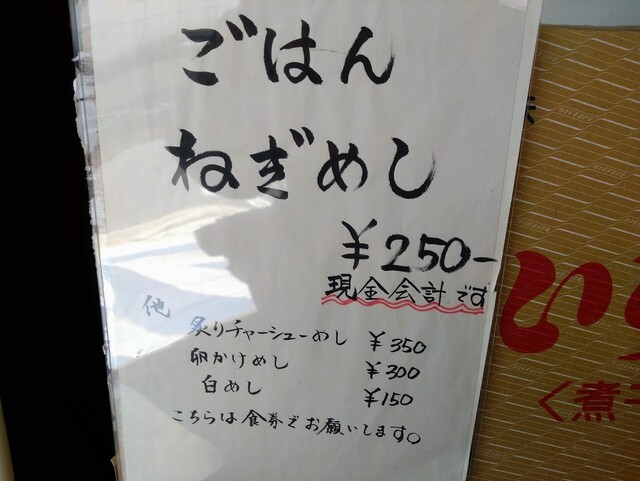 ごはん
ねぎめし
¥250-
現金会計です
他
炙りチャーシューめし ¥350
卵かけめし ¥300
白めし ¥150
こちらは食券でお願いします。
い
く煮